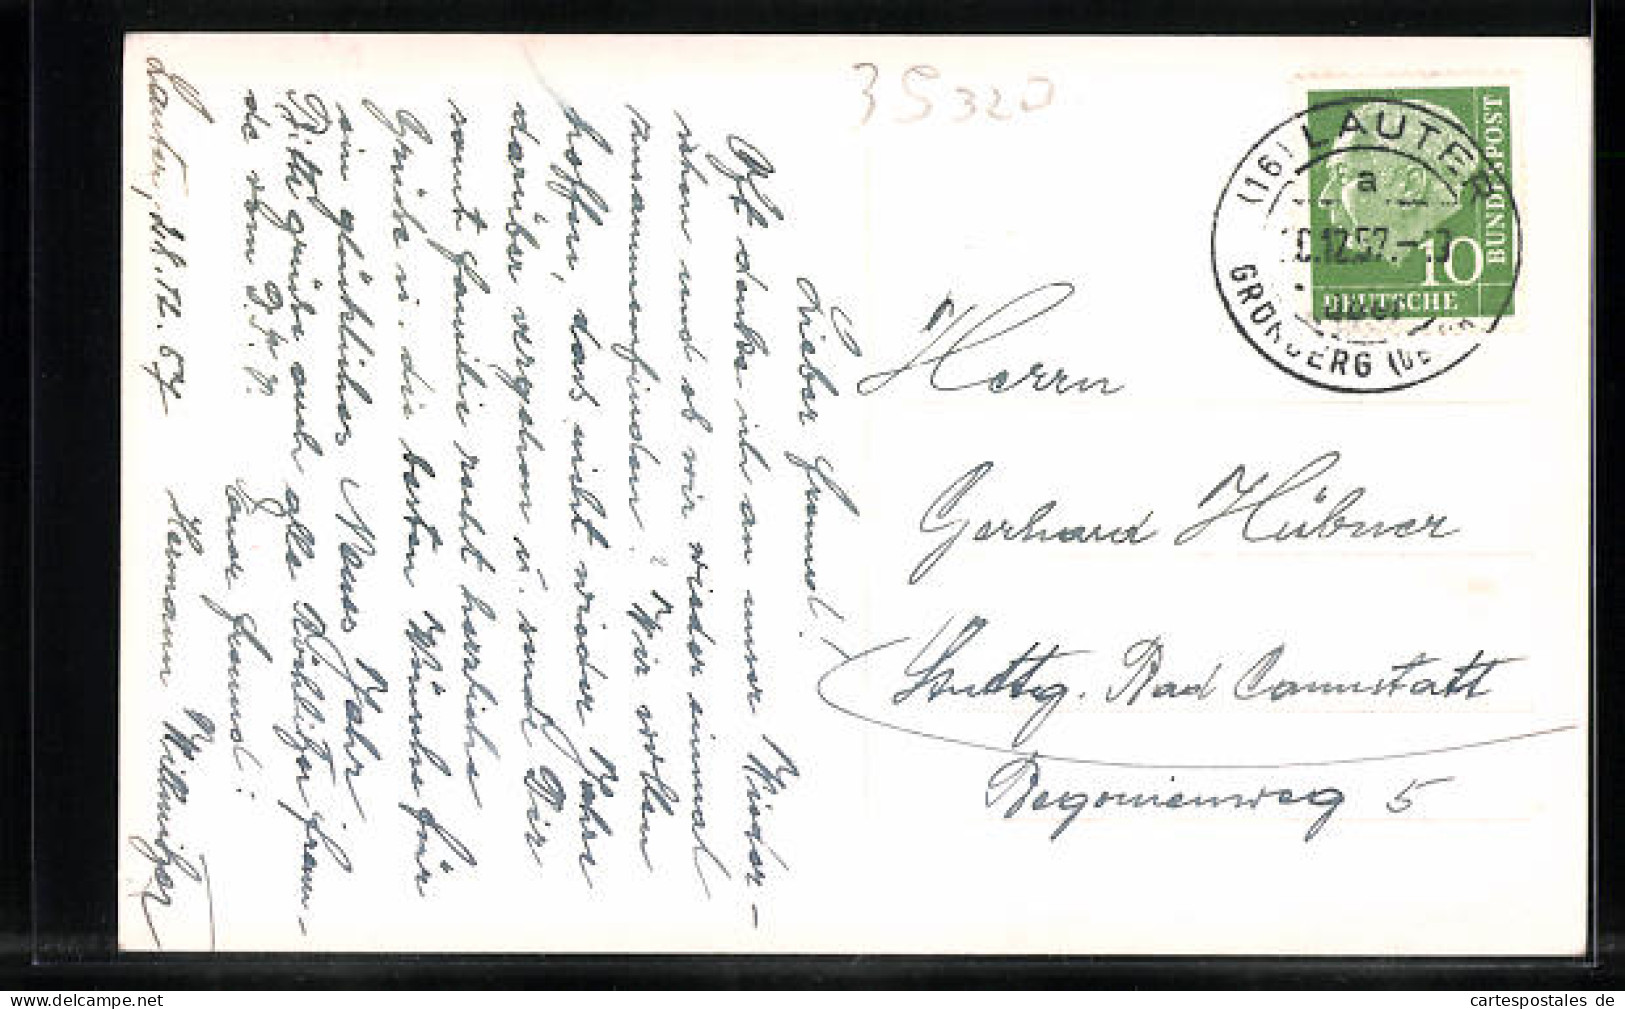 Lauter, 28.12.57
Lieber Freund!
Oft denke ich an unser Wieder-
sehen und ob wir wieder einmal
zusammenfinden? Wir wollen
hoffen, dass nicht wieder Jahre
darüber vergehen u. sende Dir
samt Familie recht herzliche
Grüsse u. die besten Wünsche für
ein glückliches Neues Jahr
Bitte grüße auch alle Röhlitzer freun-
de vom
Euer Freund:
Hermann
35320
(16) LAUTER
a
.12.57.-
GRÜNBERG
10
DEUTSCHE
BUNDESPOST
Herrn
Gerhard Hübner
Stuttg. Bad Cannstatt
Begonienweg 5
www.delcampe.net
cartespostales de